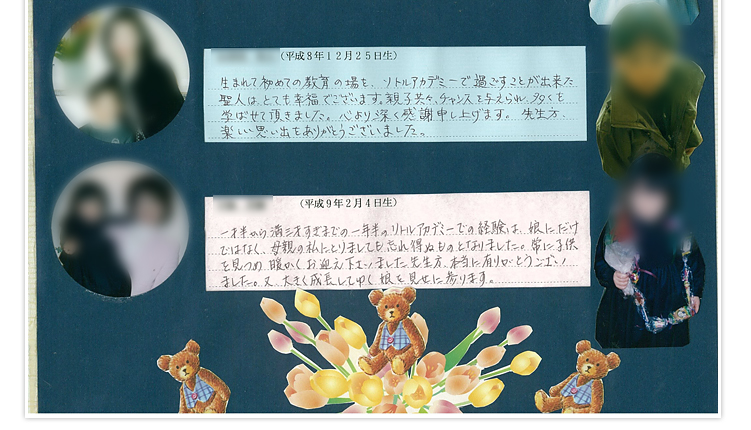 （平成８年１２月２５日生）
生まれて初めての教育の場を、リトルアカデミーで過ごすことが出来た
聖人は、とても幸福でございます。親子共々、チャンスを与えられ、多くを
学ばせて頂きました。心より深く感謝申し上げます。先生方、
楽しい思い出をありがとうございました。
（平成９年２月４日生）
一才半から満三才すぎまでの一年半のリトルアカデミーでの経験は、娘にだけ
ではなく、母親の私にとりましても忘れ得ぬものとなりました。常に子供
を見つめ、暖かくお迎え下さいました先生方、本当に有りがとうござい
ました。又、大きく成長してゆく娘を見せに参ります。